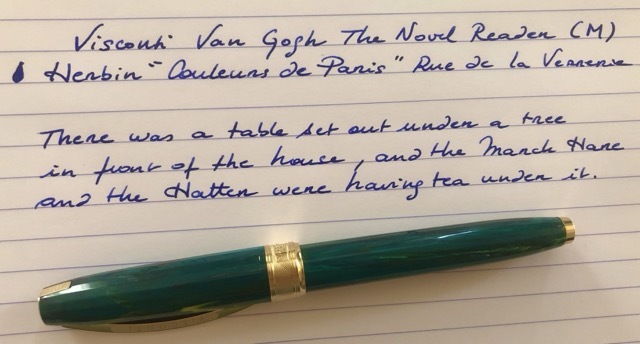 Visconti Van Gogh The Novel Reader (M)
Herbin "Couleurs de Paris" Rue de la Verrerie
There was a table set out under a tree
in front of the house, and the March Hare
and the Hatter were having tea under it.